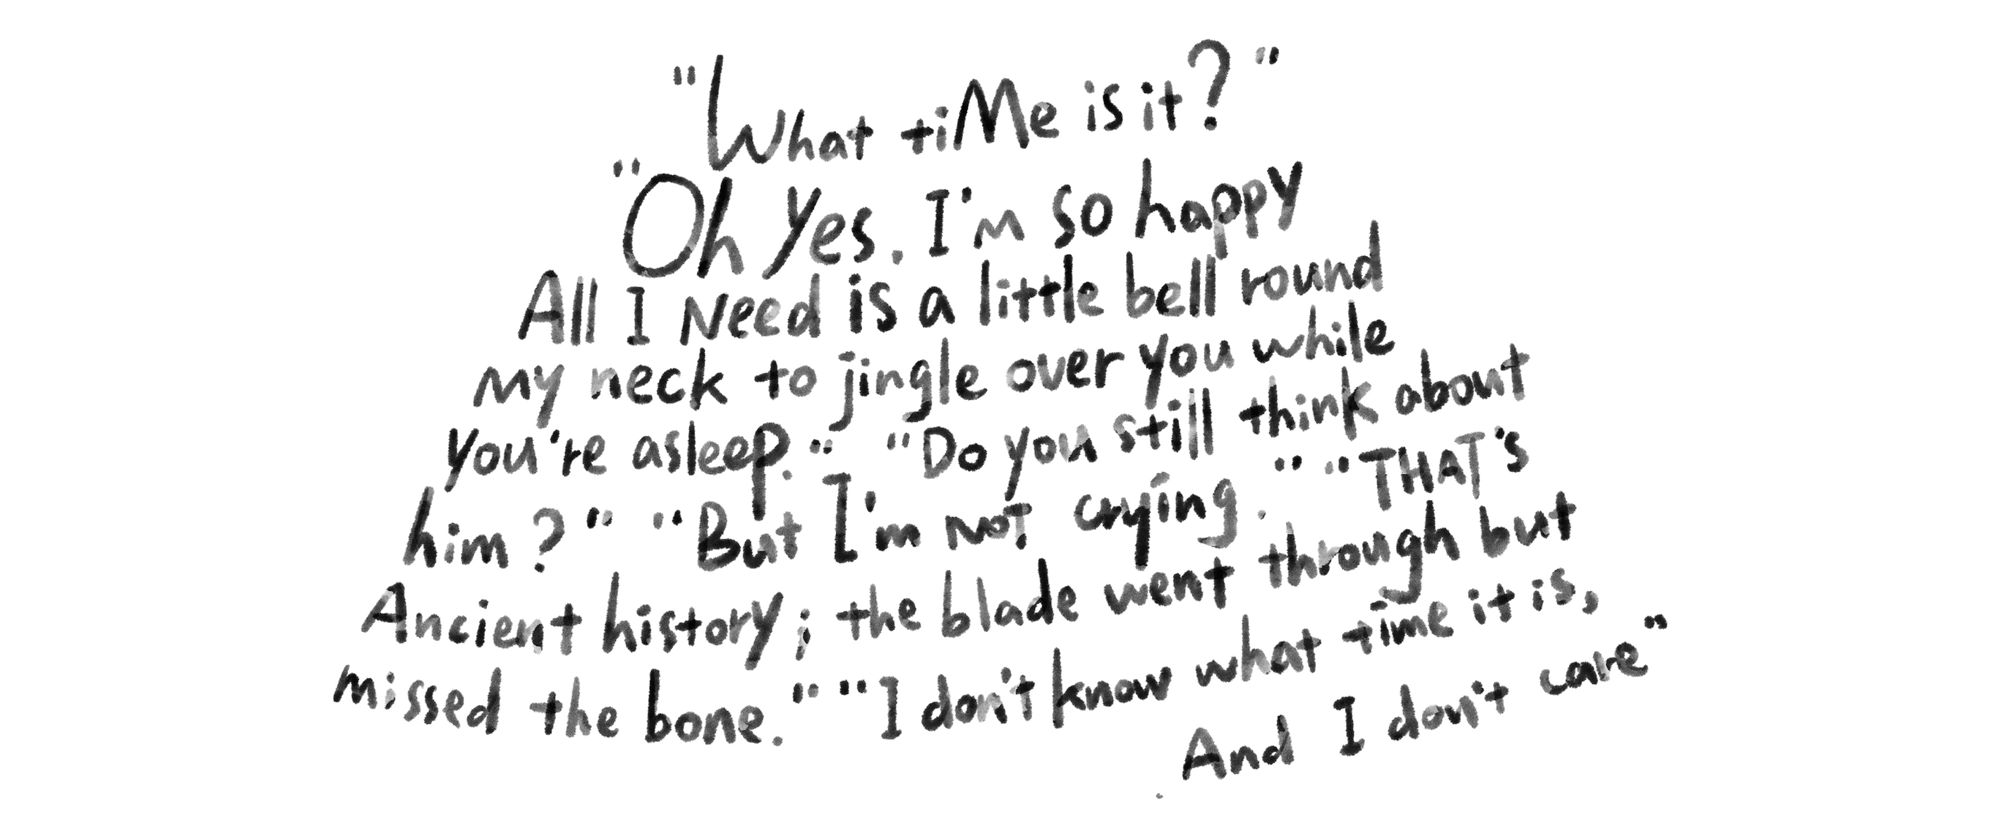 "What tiMe is it?"
"Oh Yes. I'm so happy
All I Need is a little bell round
my neck to jingle over you while
you're asleep." "Do you still think about
him?" "But I'm NOT crying." "THAT's
Ancient history; the blade went through but
missed the bone." "I don't know what time it is,
And I don't care"